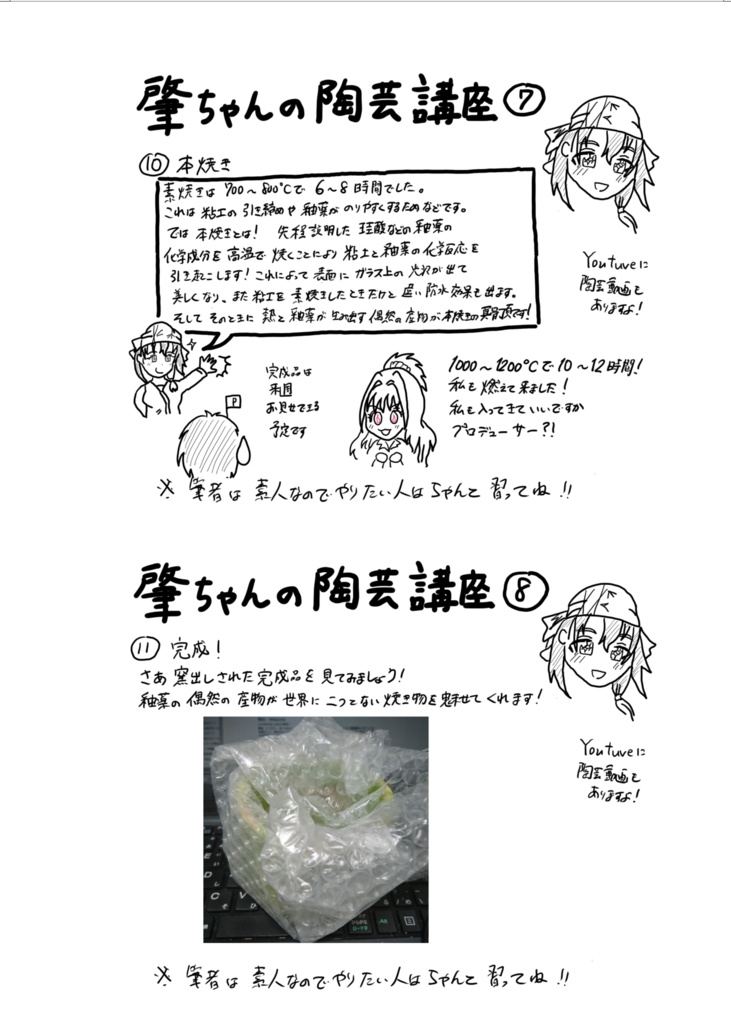 肇ちゃんの陶芸講座⑦
⑩ 本焼き
素焼きは 700〜800℃で 6〜8時間でした。
これは 粘土の 引き締めや 釉薬が のりやすくするためなどです。
では 本焼きとは! 先程説明した 珪酸などの 釉薬の
化学成分を 高温で 焼くことにより 粘土と 釉薬の 化学反応を
引き起こします! これによって 表面に ガラス上の 光沢が出て
美しくなり、また 粘土を 素焼きしたときだけと 違い 防水効果も出ます。
そして そのときに 熱と 釉薬が 生み出す 偶然の産物が 本焼きの 真骨頂です!
Youtuveに
陶芸動画も
ありますよ!
完成品は
来週
お見せできる
予定です
P
1000〜1200℃で 10〜12時間!
私も 燃えて来ました!
私も 入ってきていいですか
プロデューサー?!
※ 筆者は 素人なのでやりたい人はちゃんと 習ってね!!
肇ちゃんの陶芸講座⑧
⑪ 完成!
さあ 窯出しされた 完成品を 見てみましょう!
釉薬の 偶然の 産物が 世界に 二つとない 焼き物を 魅せて くれます!
Youtuveに
陶芸動画も
ありますよ!
※ 筆者は 素人なのでやりたい人はちゃんと 習ってね!!